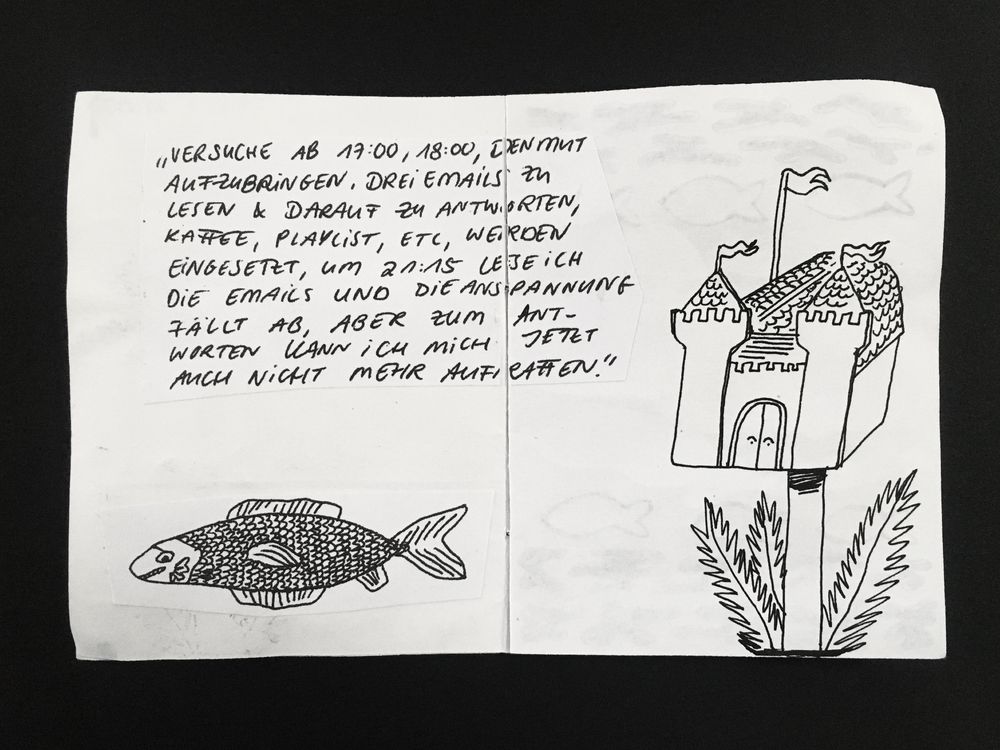 „VERSUCHE AB 17:00, 18:00, DEN MUT
AUFZUBRINGEN. DREI EMAILS ZU
LESEN & DARAUF ZU ANTWORTEN,
KAFFEE, PLAYLIST, ETC, WERDEN
EINGESETZT, UM 21:15 LESE ICH
DIE EMAILS UND DIE ANSPANNUNG
FÄLLT AB, ABER ZUM ANT-
WORTEN KANN ICH MICH JETZT
AUCH NICHT MEHR AUFRAFFEN."